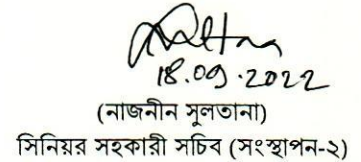 18.09.2022
(নাজনীন সুলতানা)
সিনিয়র সহকারী সচিব (সংস্থাপন-২)